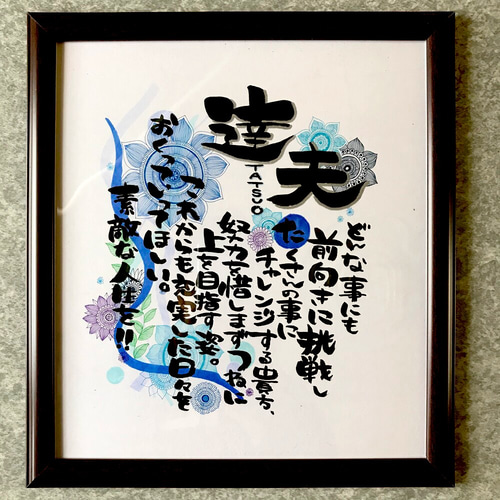 達夫
TATSUO
どんな事にも
前向きに挑戦し
たくさんの事に
チャレンジする貴方、
努力を惜しまずつねに
上を目指す姿。
これからも充実した日々を
おくっていってほしい。
素敵な人生を!!